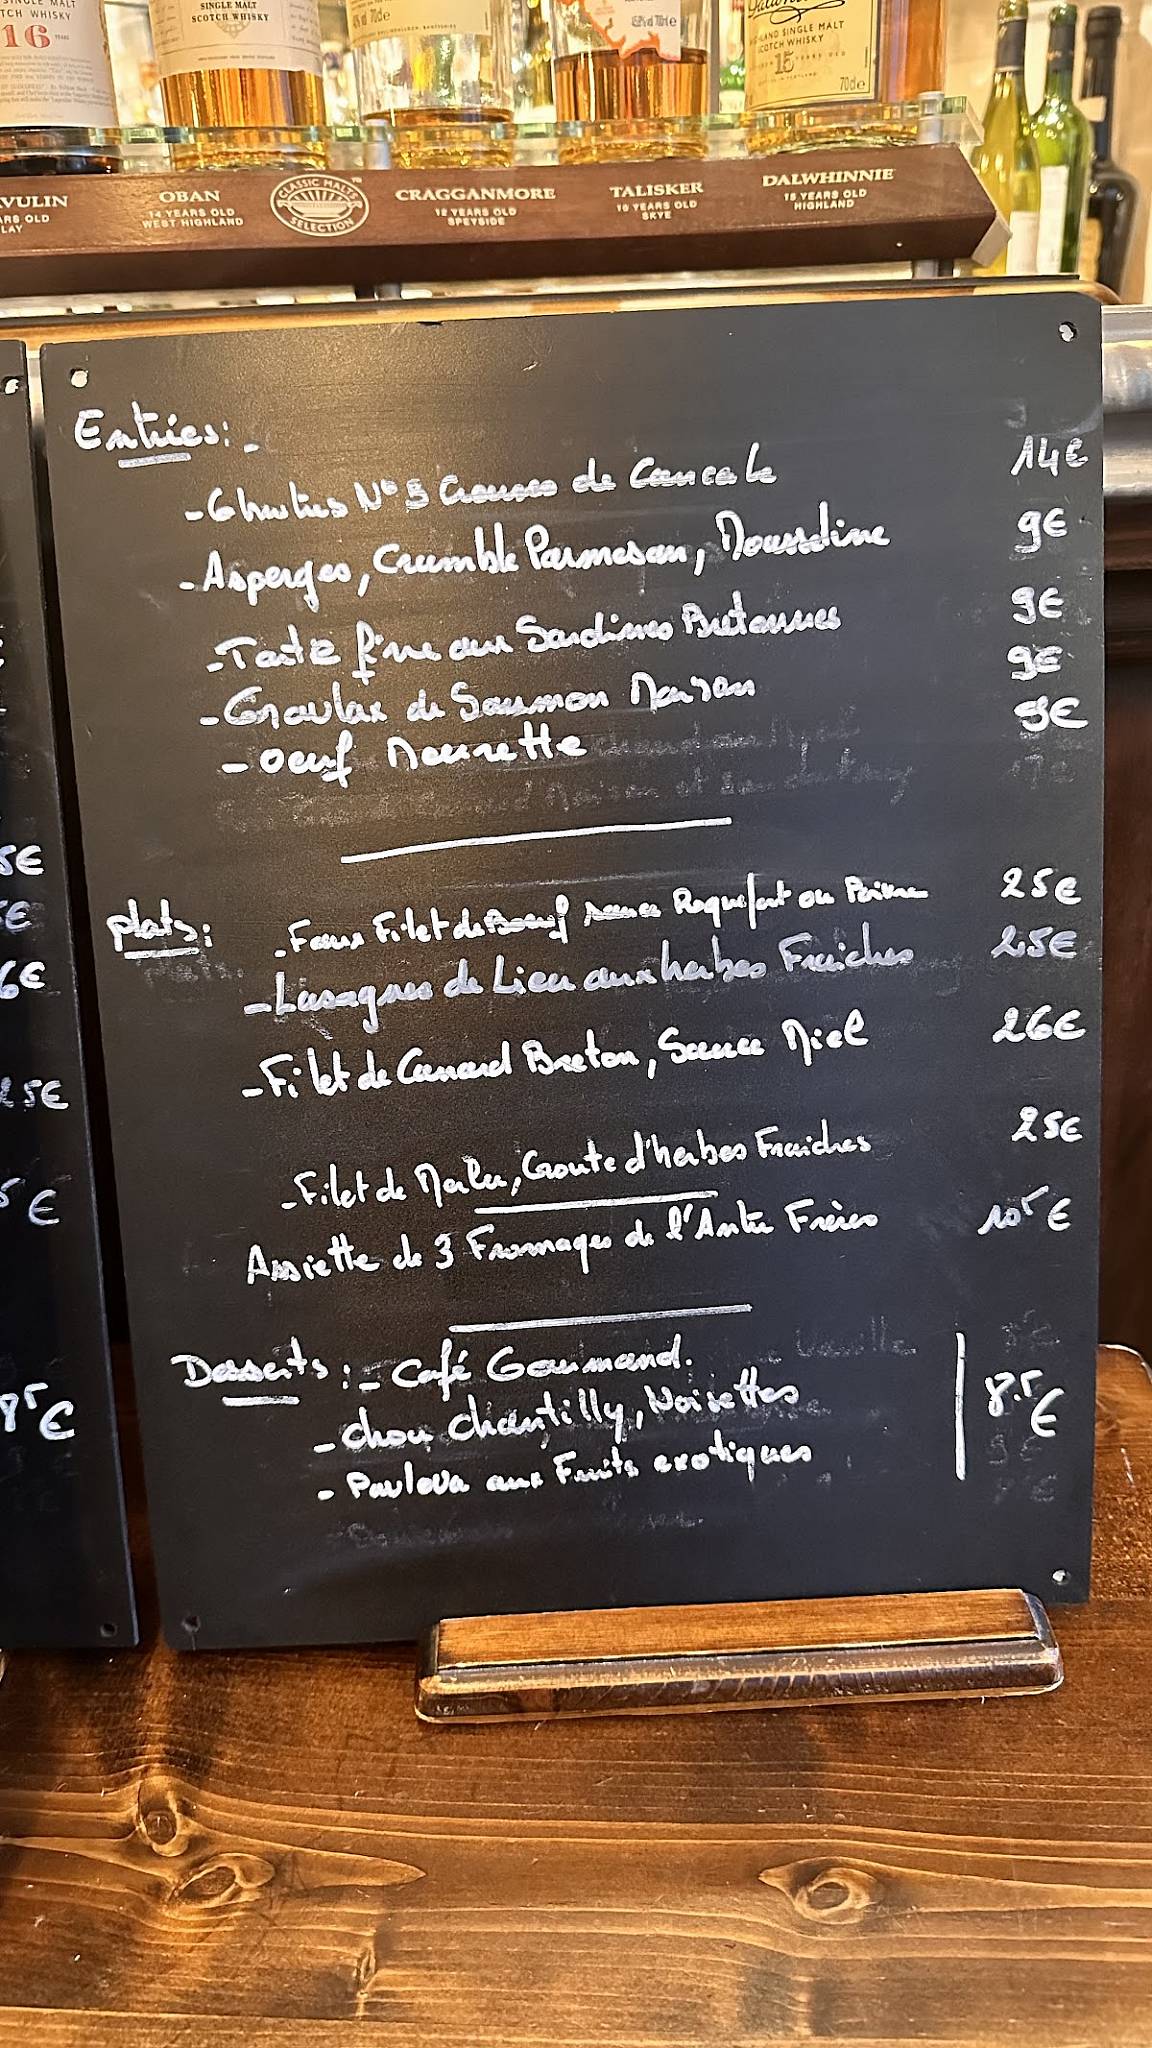 SINGLE MALT
16 YEARS
SINGLE MALT
SCOTCH WHISKY
70cl e
HIGHLAND SINGLE MALT
SCOTCH WHISKY
15 YEARS OLD
70cl e
OBAN
14 YEARS OLD
WEST HIGHLAND
CLASSIC MALTS
SELECTION
CRAGGANMORE
12 YEARS OLD
SPEYSIDE
TALISKER
10 YEARS OLD
SKYE
DALWHINNIE
15 YEARS OLD
HIGHLAND
Entrées:
- 6 huitres N°3 Creuses de Cancale 14€
- Asperges, Crumble Parmesan, Mousseline 9€
- Tarte fine aux Sardines Bretonnes 9€
- Gravlax de Saumon Maison 9€
- Oeuf Meurette 9€
Plats:
- Faux Filet de Boeuf sauce Roquefort ou Poivre 25€
- Lasagnes de Lieu aux herbes Fraiches 25€
- Filet de Canard Breton, Sauce Miel 26€
- Filet de Merlu, Croute d'herbes Fraiches 25€
Assiette de 3 Fromages de l'Antre Frères 10⁵€
Desserts: - Café Gourmand.
- Chou Chantilly, Noisettes 8.⁵€
- Pavlova aux Fruits exotiques